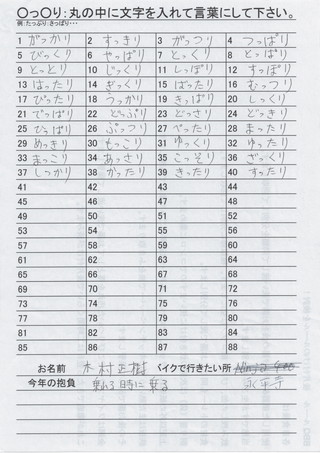 〇っ〇り:丸の中に文字を入れて言葉にして下さい。
例:たっぷり・さっぱり・・・
1 がっかり 2 すっきり 3 がっつり 4 つっぱり
5 びっくり 6 やっぱり 7 とっくり 8 とっぱり
9 とっとり 10 じっくり 11 しっぽり 12 すっぽり
13 はったり 14 ぎっくり 15 ばったり 16 むっつり
17 ぴったり 18 うっかり 19 きっぱり 20 しっくり
21 でっぱり 22 どっぷり 23 どっさり 24 どっきり
25 ひっぱり 26 ぷっつり 27 べったり 28 まったり
29 めっきり 30 もっこり 31 ゆっくり 32 ゆったり
33 まっこり 34 あっさり 35 こっそり 36 ざっくり
37 しっかり 38 かったり 39 きったり 40 すったり
41 42 43 44
45 46 47 48
49 50 51 52
53 54 55 56
57 58 59 60
61 62 63 64
65 66 67 68
69 70 71 72
73 74 75 76
77 78 79 80
81 82 83 84
85 86 87 88
お名前 木村正樹 バイクで行きたい所 Ninja 400
今年の抱負 乗れる時に乗る 永平寺